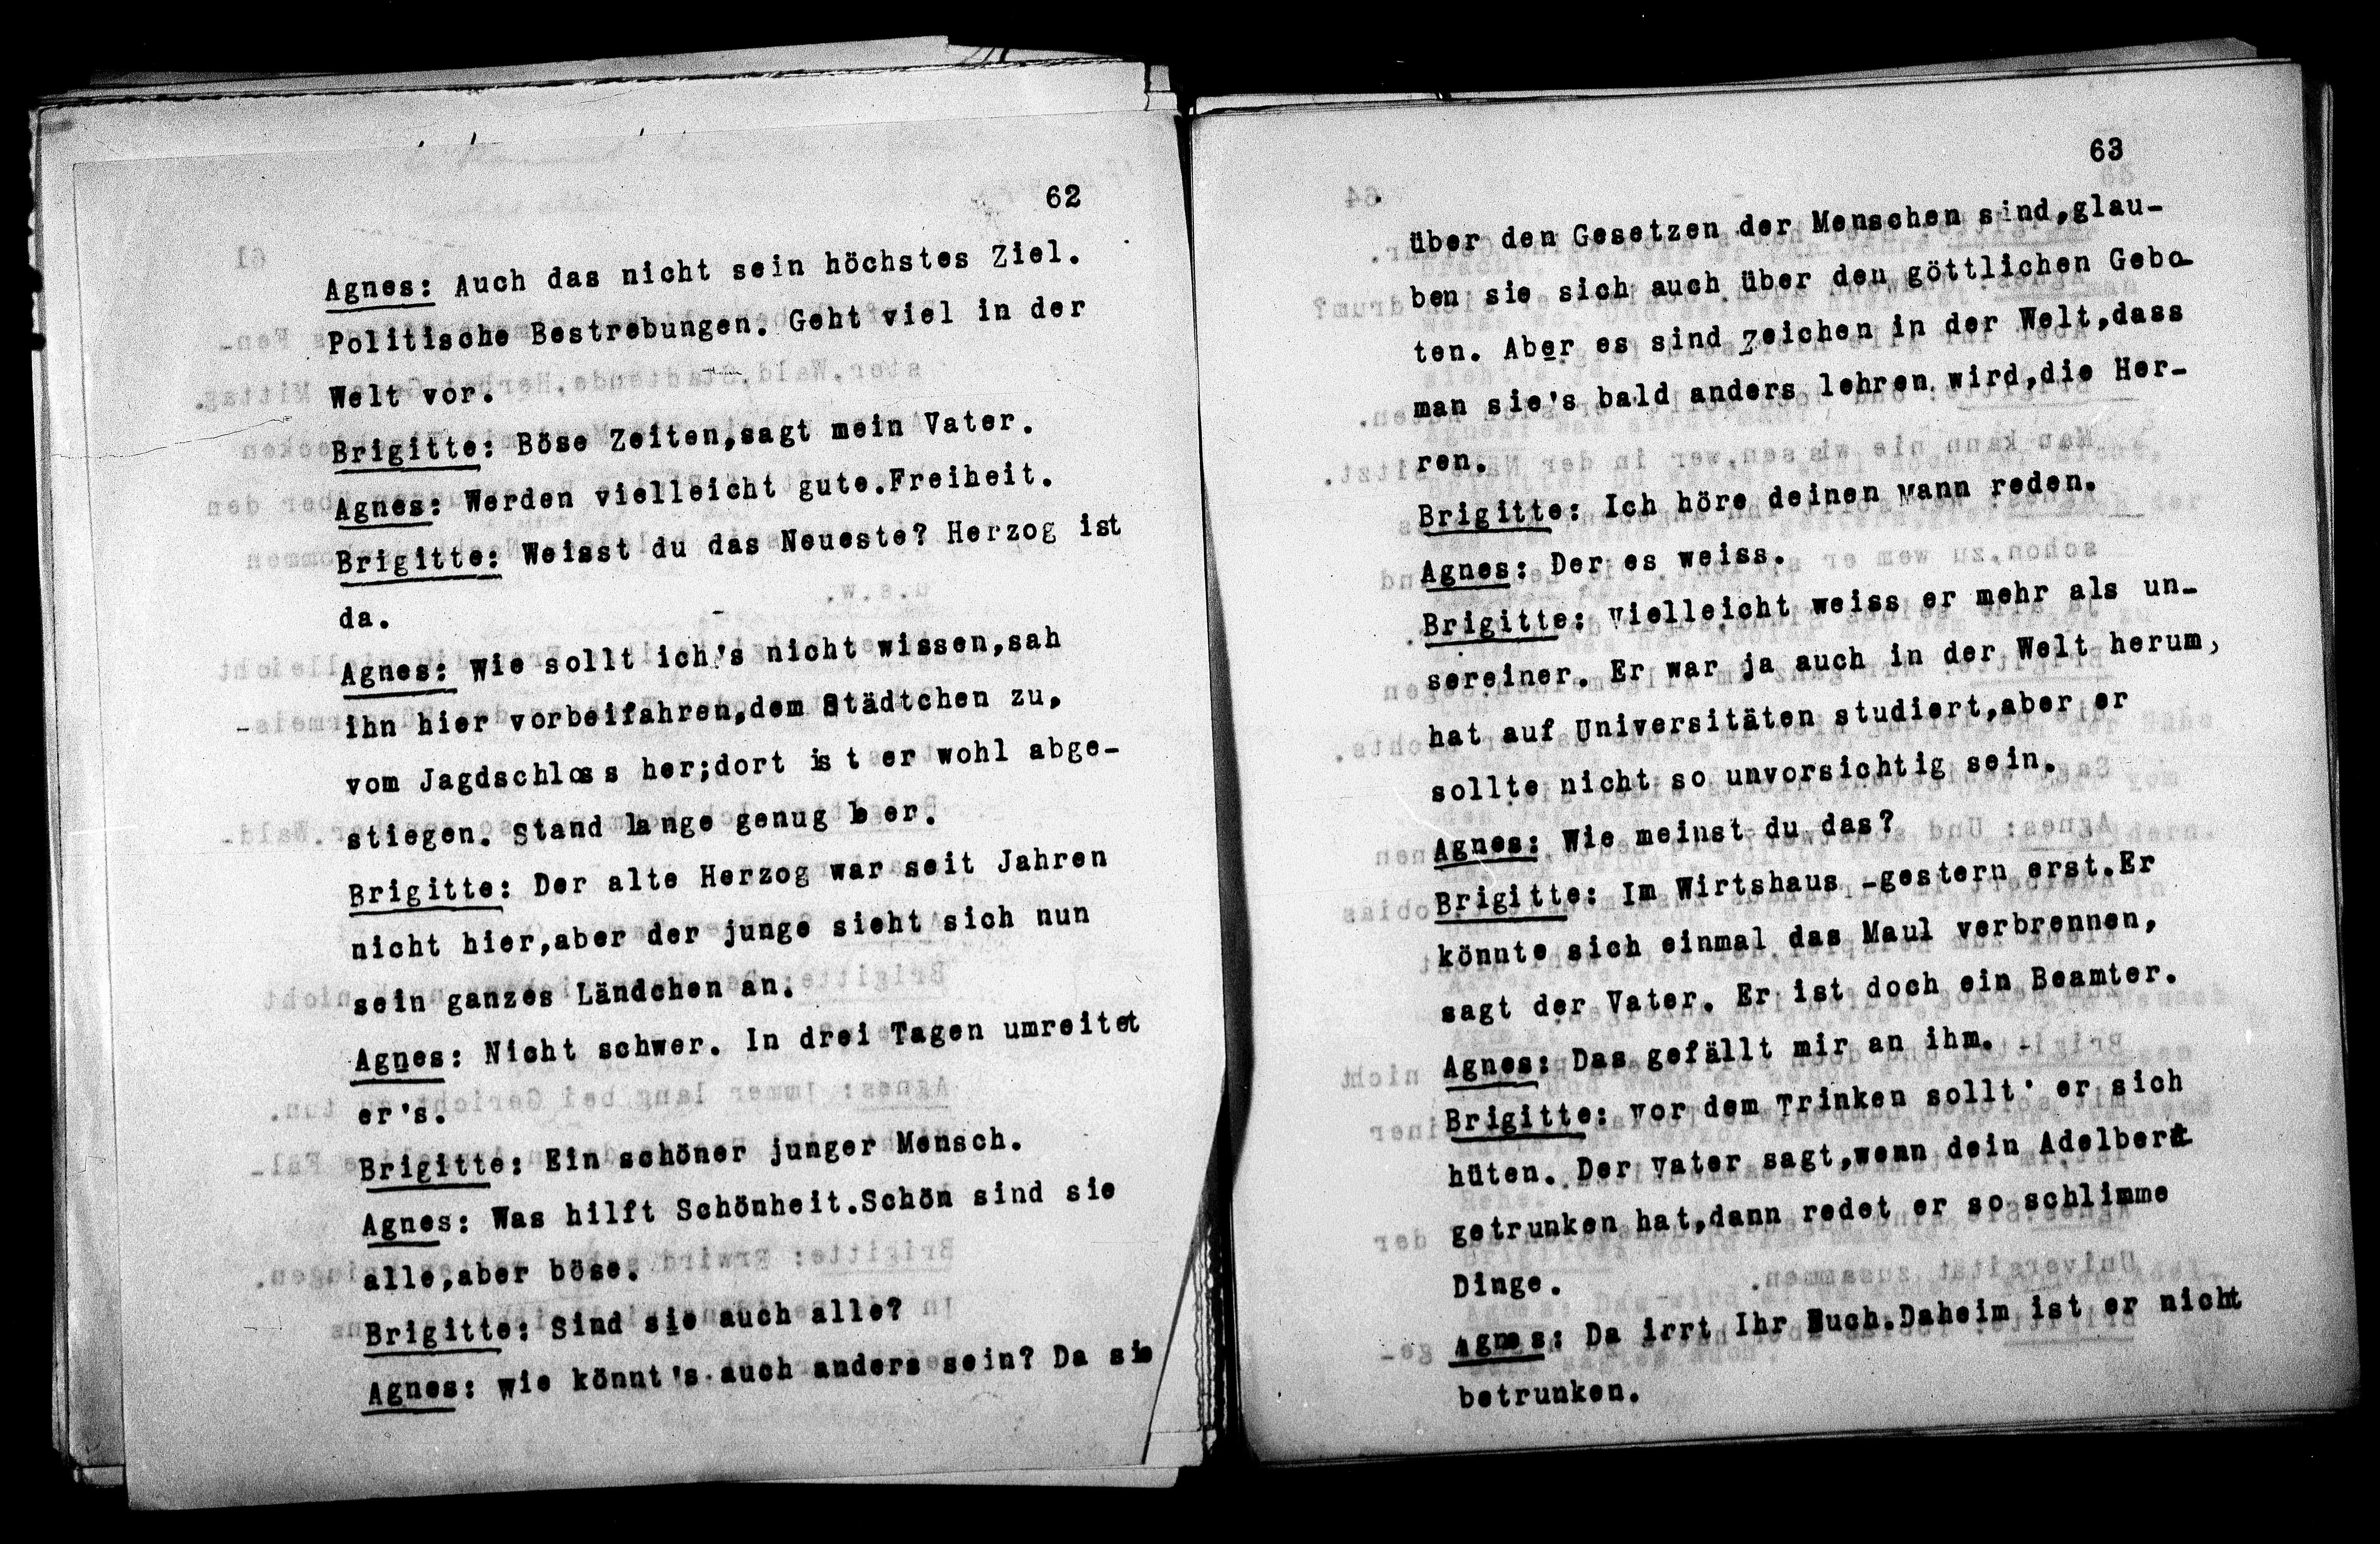 62
Agnes: Auch das nicht sein höchstes Ziel.
Politische Bestrebungen. Geht viel in der
Welt vor.
Brigitte: Böse Zeiten,sagt mein Vater.
Agnes: Werden vielleicht gute.Freiheit.
Brigitte: Weisst du das Neueste? Herzog ist
da.
Agnes: Wie sollt ich's nicht wissen,sah
ihn hier vorbeifahren,dem Städtchen zu,
vom Jagdschloss her;dort ist er wohl abge-
stiegen. Stand lange genug leer.
Brigitte: Der alte Herzog war seit Jahren
nicht hier,aber der junge sieht sich nun
sein ganzes Ländchen an.
Agnes: Nicht schwer. In drei Tagen umreitet
er's.
Brigitte: Ein schöner junger Mensch.
Agnes: Was hilft Schönheit.Schön sind sie
alle,aber böse.
Brigitte: Sind sie auch alle?
Agnes: Wie könnt's auch anders sein? Da sie
63
über den Gesetzen der Menschen sind,glau-
ben sie sich auch über den göttlichen Gebo-
ten. Aber es sind Zeichen in der Welt,dass
man sie's bald anders lehren wird,die Her-
ren.
Brigitte: Ich höre deinen Mann reden.
Agnes: Der es weiss.
Brigitte: Vielleicht weiss er mehr als un-
sereiner. Er war ja auch in der Welt herum,
hat auf Universitäten studiert,aber er
sollte nicht so unvorsichtig sein.
Agnes: Wie meinst du das?
Brigitte: Im Wirtshaus -gestern erst.Er
könnte sich einmal das Maul verbrennen,
sagt der Vater. Er ist doch ein Beamter.
Agnes: Das gefällt mir an ihm.
Brigitte: Vor dem Trinken sollt' er sich
hüten. Der Vater sagt,wenn dein Adelbert
getrunken hat,dann redet er so schlimme
Dinge.
Agnes: Da irrt Ihr Euch.Daheim ist er nicht
betrunken.